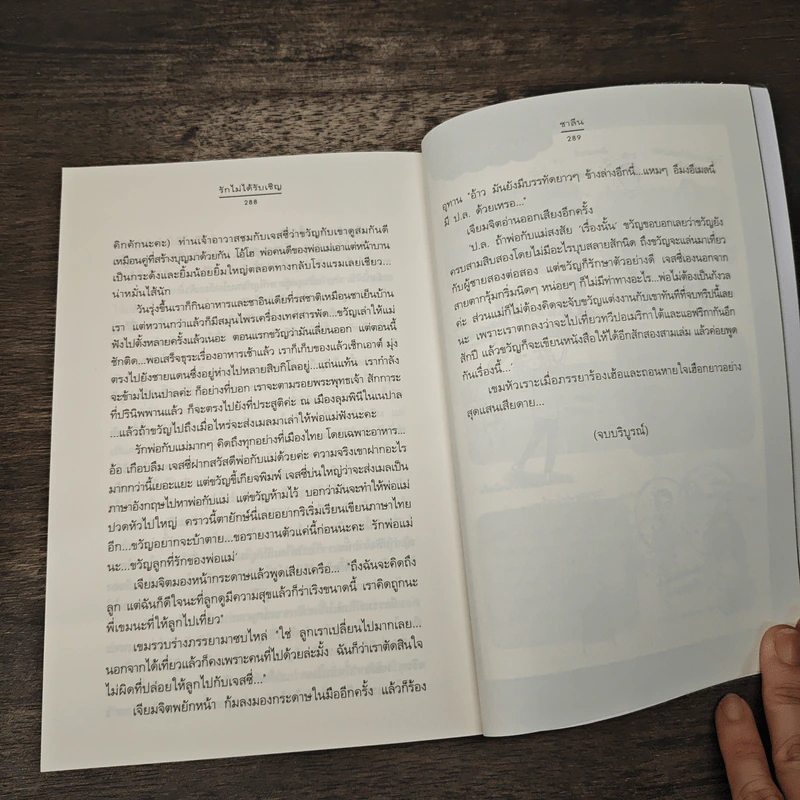 รักไม่ได้รับเชิญ
288
คิกคักนะคะ) ท่านเจ้าอาวาสชมกับเจสซี่ว่าขวัญกับเขาดูสมกันดี
เหมือนคู่ที่สร้างบุญมาด้วยกัน โอ้โฮ พ่อคนดีของพ่อแม่เอาแต่หน้าบาน
เป็นกระด้งและยิ้มน้อยยิ้มใหญ่ตลอดทางกลับโรงแรมเลยเชียว...
น่าหมั่นไส้นัก
วันรุ่งขึ้นเราก็กินอาหารและชาอินเดียที่รสชาติเหมือนชาเย็นบ้าน
เรา แต่หวานกว่าแล้วก็มีสมุนไพรเครื่องเทศสารพัด...ขวัญเล่าให้แม่
ฟังไปตั้งหลายครั้งแล้วเนอะ ตอนแรกขวัญว่ามันเลี่ยนออก แต่ตอนนี้
ชักติด...พอเสร็จธุระเรื่องอาหารเช้าแล้ว เราก็เก็บของแล้วเช็กเอาต์ มุ่ง
ตรงไปยังชายแดนซึ่งอยู่ห่างไปหลายสิบกิโลอยู่...แถ่นแท้น เรากำลัง
จะข้ามไปเนปาลค่ะ ก็อย่างที่บอก เราจะตามรอยพระพุทธเจ้า สักการะ
ที่ปรินิพพานแล้ว ก็จะตรงไปยังที่ประสูติค่ะ ณ เมืองลุมพินีในเนปาล
...แล้วถ้าขวัญไปถึงเมื่อไหร่จะส่งเมลมาเล่าให้พ่อแม่ฟังนะคะ
รักพ่อกับแม่มากๆ คิดถึงทุกอย่างที่เมืองไทย โดยเฉพาะอาหาร...
อ้อ เกือบลืม เจสซี่ฝากสวัสดีพ่อกับแม่ด้วยค่ะ ความจริงเขาฝากอะไร
มากกว่านี้เยอะแยะ แต่ขวัญขี้เกียจพิมพ์ เจสซี่บ่นใหญ่ว่าจะส่งเมลเป็น
ภาษาอังกฤษไปหาพ่อกับแม่ แต่ขวัญห้ามไว้ บอกว่ามันจะทำให้พ่อแม่
ปวดหัวไปใหญ่ คราวนี้ตายักษ์นี่เลยอยากริเริ่มเรียนเขียนภาษาไทย
อีก...ขวัญอยากจะบ้าตาย...ขอรายงานตัวแค่นี้ก่อนนะคะ รักพ่อแม่
นะ...ขวัญลูกที่รักของพ่อแม่'
เจียมจิตมองหน้ากระดาษแล้วพูดเสียงเครือ... "ถึงฉันจะคิดถึง
ลูก แต่ฉันก็ดีใจนะที่ลูกดูมีความสุขแล้วก็ร่าเริงขนาดนี้ เราคิดถูกนะ
พี่เขมนะที่ให้ลูกไปเที่ยว"
เขมรวบร่างภรรยามาซบไหล่ "ใช่ ลูกเราเปลี่ยนไปมากเลย...
นอกจากได้เที่ยวแล้วก็คงเพราะคนที่ไปด้วยล่ะมั้ง ฉันก็ว่าเราตัดสินใจ
ไม่ผิดที่ปล่อยให้ลูกไปกับเจสซี่..."
เจียมจิตพยักหน้า ก้มลงมองกระดาษในมืออีกครั้ง แล้วก็ร้อง
ชาลีน
289
อุทาน "อ้าว มันยังมีบรรทัดยาวๆ ข้างล่างอีกนี่...แหมๆ อีมงอีเมลนี่
มี ป.ล. ด้วยเหรอ..."
เจียมจิตอ่านออกเสียงอีกครั้ง
'ป.ล. ถ้าพ่อกับแม่สงสัย 'เรื่องนั้น' ขวัญขอบอกเลยว่าขวัญยัง
ครบสามสิบสองโดยไม่มีอะไรบุบสลายสักนิด ถึงขวัญจะแล่นมาเที่ยว
กับผู้ชายสองต่อสอง แต่ขวัญก็รักษาตัวอย่างดี เจสซี่เองนอกจาก
สายตากรุ้มกริ่มนิดๆ หน่อยๆ ก็ไม่มีท่าทางอะไร...พ่อไม่ต้องเป็นกังวล
ค่ะ ส่วนแม่ก็ไม่ต้องคิดจะจับขวัญแต่งงานกับเขาทันทีที่จบทริปนี้เลย
นะ เพราะเราตกลงว่าจะไปเที่ยวทวีปอเมริกาใต้และแอฟริกากันอีก
สักปี แล้วขวัญก็จะเขียนหนังสือให้ได้อีกสักสองสามเล่ม แล้วค่อยพูด
กันเรื่องนี้...'
เขมหัวเราะเมื่อภรรยาร้องเฮ้อและถอนหายใจเฮือกยาวอย่าง
สุดแสนเสียดาย...
(จบบริบูรณ์)